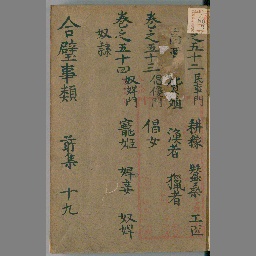 之五十二 民事門 耕稼 蠶桑 工匠
漁者 獵者
卷之五十三 倡女
卷之五十四 奴婢門 寵姬 婢妾 奴婢
奴隸
合璧事類 前集 十九